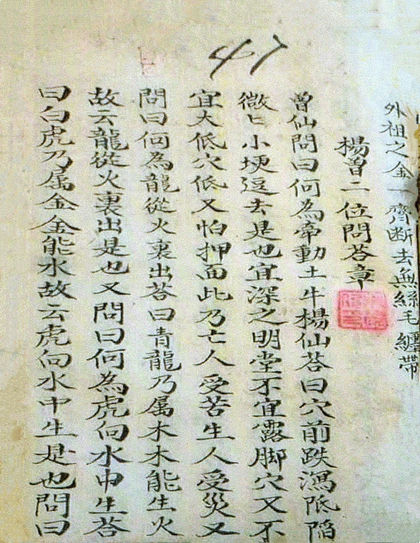 外祖之金一齊断去無絲毛纏帶
楊曽二位問荅章
曽仙問曰何為牽動土牛楊仙荅曰穴前跌溤低陷
微匕小埂逗去是也宜深之明堂不宜露脚穴又不
宜大低穴低又怕押面此乃亡人受苦生人受災又
問曰何為龍從火裏出荅曰青龍乃属木木能生火
故云龍從火裏出是也又問曰何為虎向水中生荅
曰白虎乃属金金能水故云虎向水中生是也問曰
47